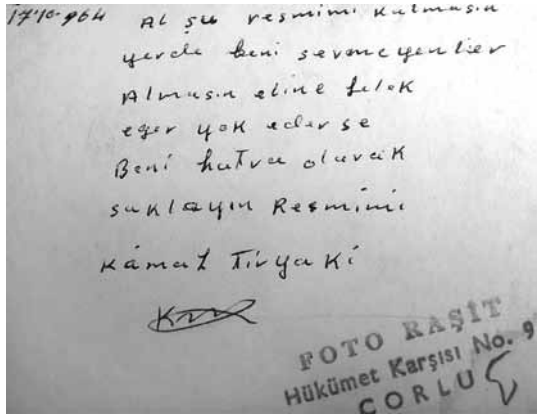 17-10-964 Al şu resmimi kalmasın
yerde beni sevmeyenler
Almasın eline felek
eğer yok ederse
Beni hatıra olarak
saklayın Resmimi
Kâmal Tiryaki
FOTO RAŞİT
Hükümet Karşısı No. 9
ÇORLU